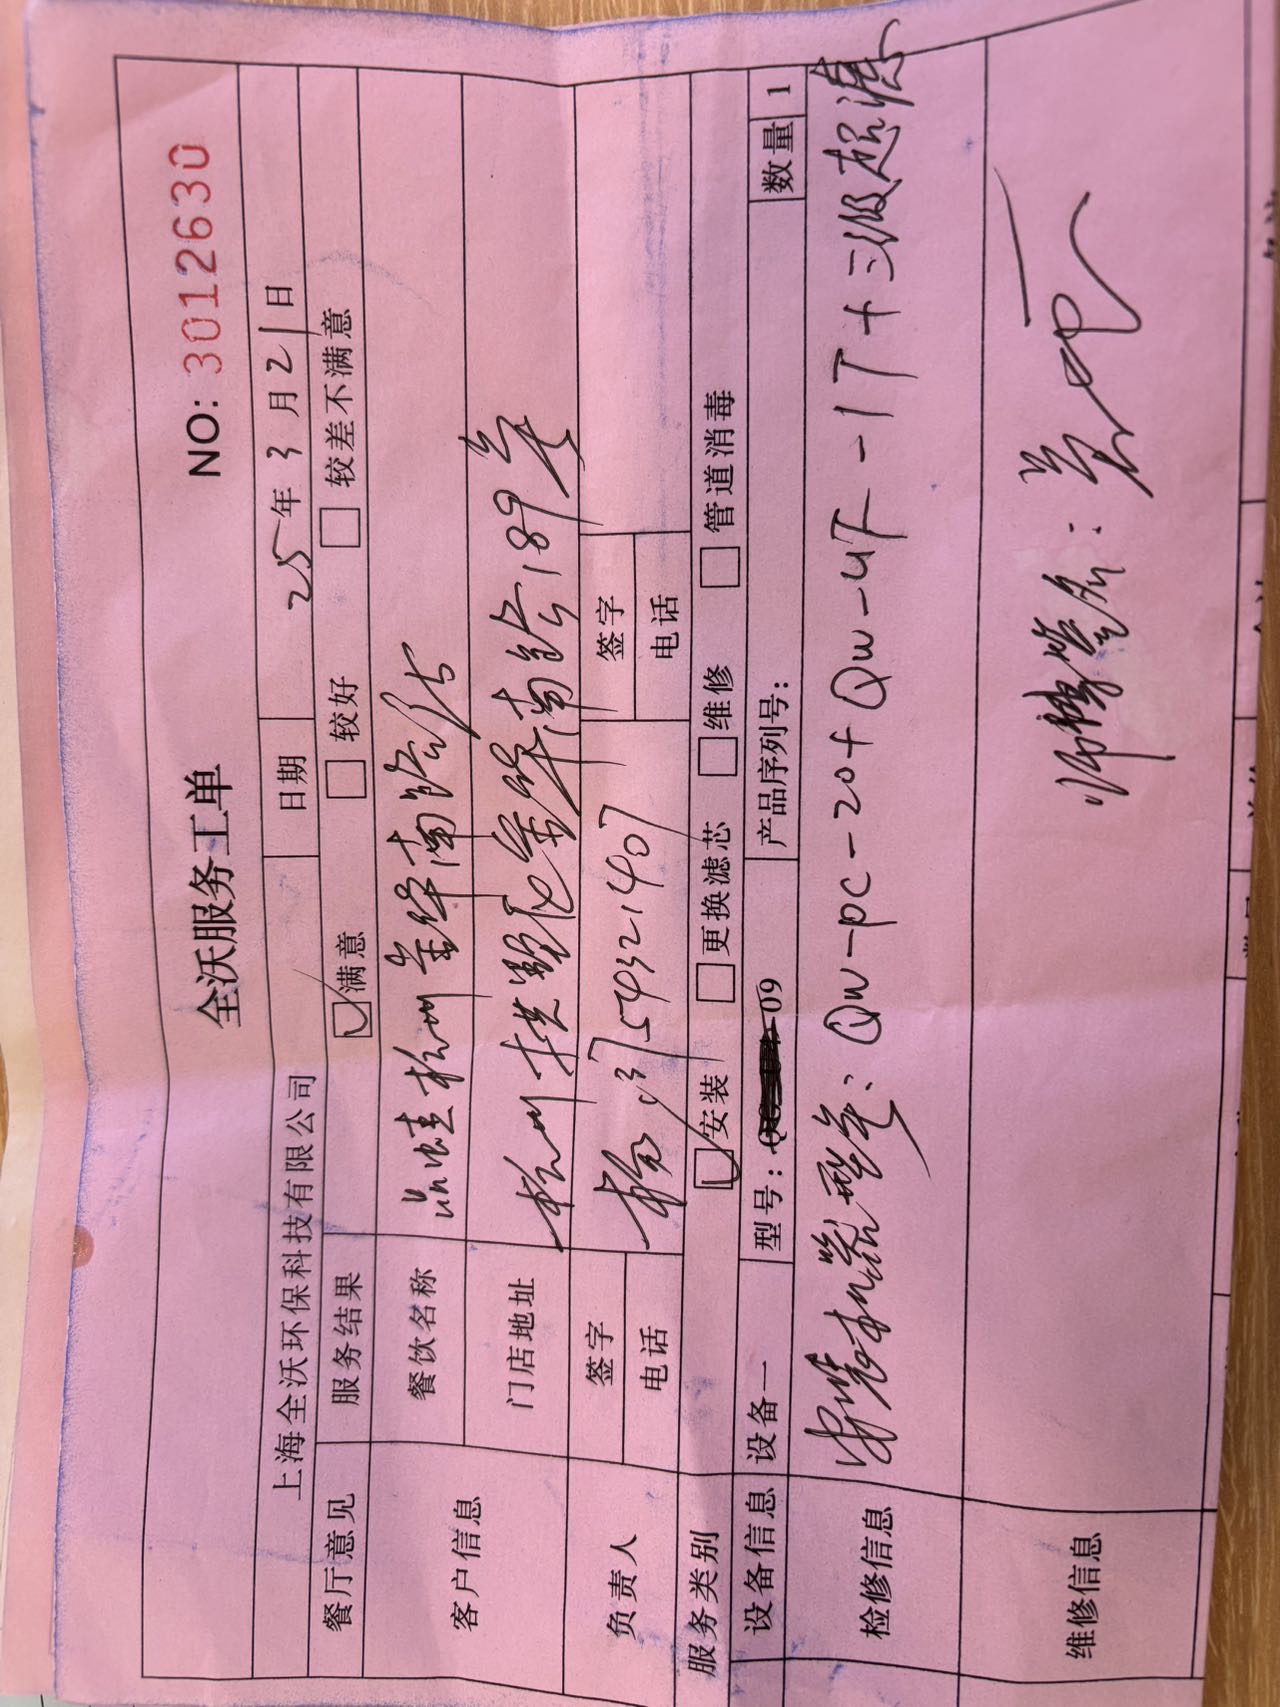 全沃服务工单 NO: 3012630
上海全沃环保科技有限公司 日期 25年3月21日
餐厅意见 服务结果 满意 较好 较差不满意
客户信息 餐饮名称 杭州金华南路店
门店地址 杭州拱墅区金华南路189号
负责人 签字 签字
电话 13754321407 电话
服务类别 安装 更换滤芯 维修 管道消毒
设备信息 设备一 型号: 09 产品序列号: 数量 1
检修信息 安装机器型号: QW-PC-20+QW-UF-1T+三级超滤
维修信息 师傅签名: